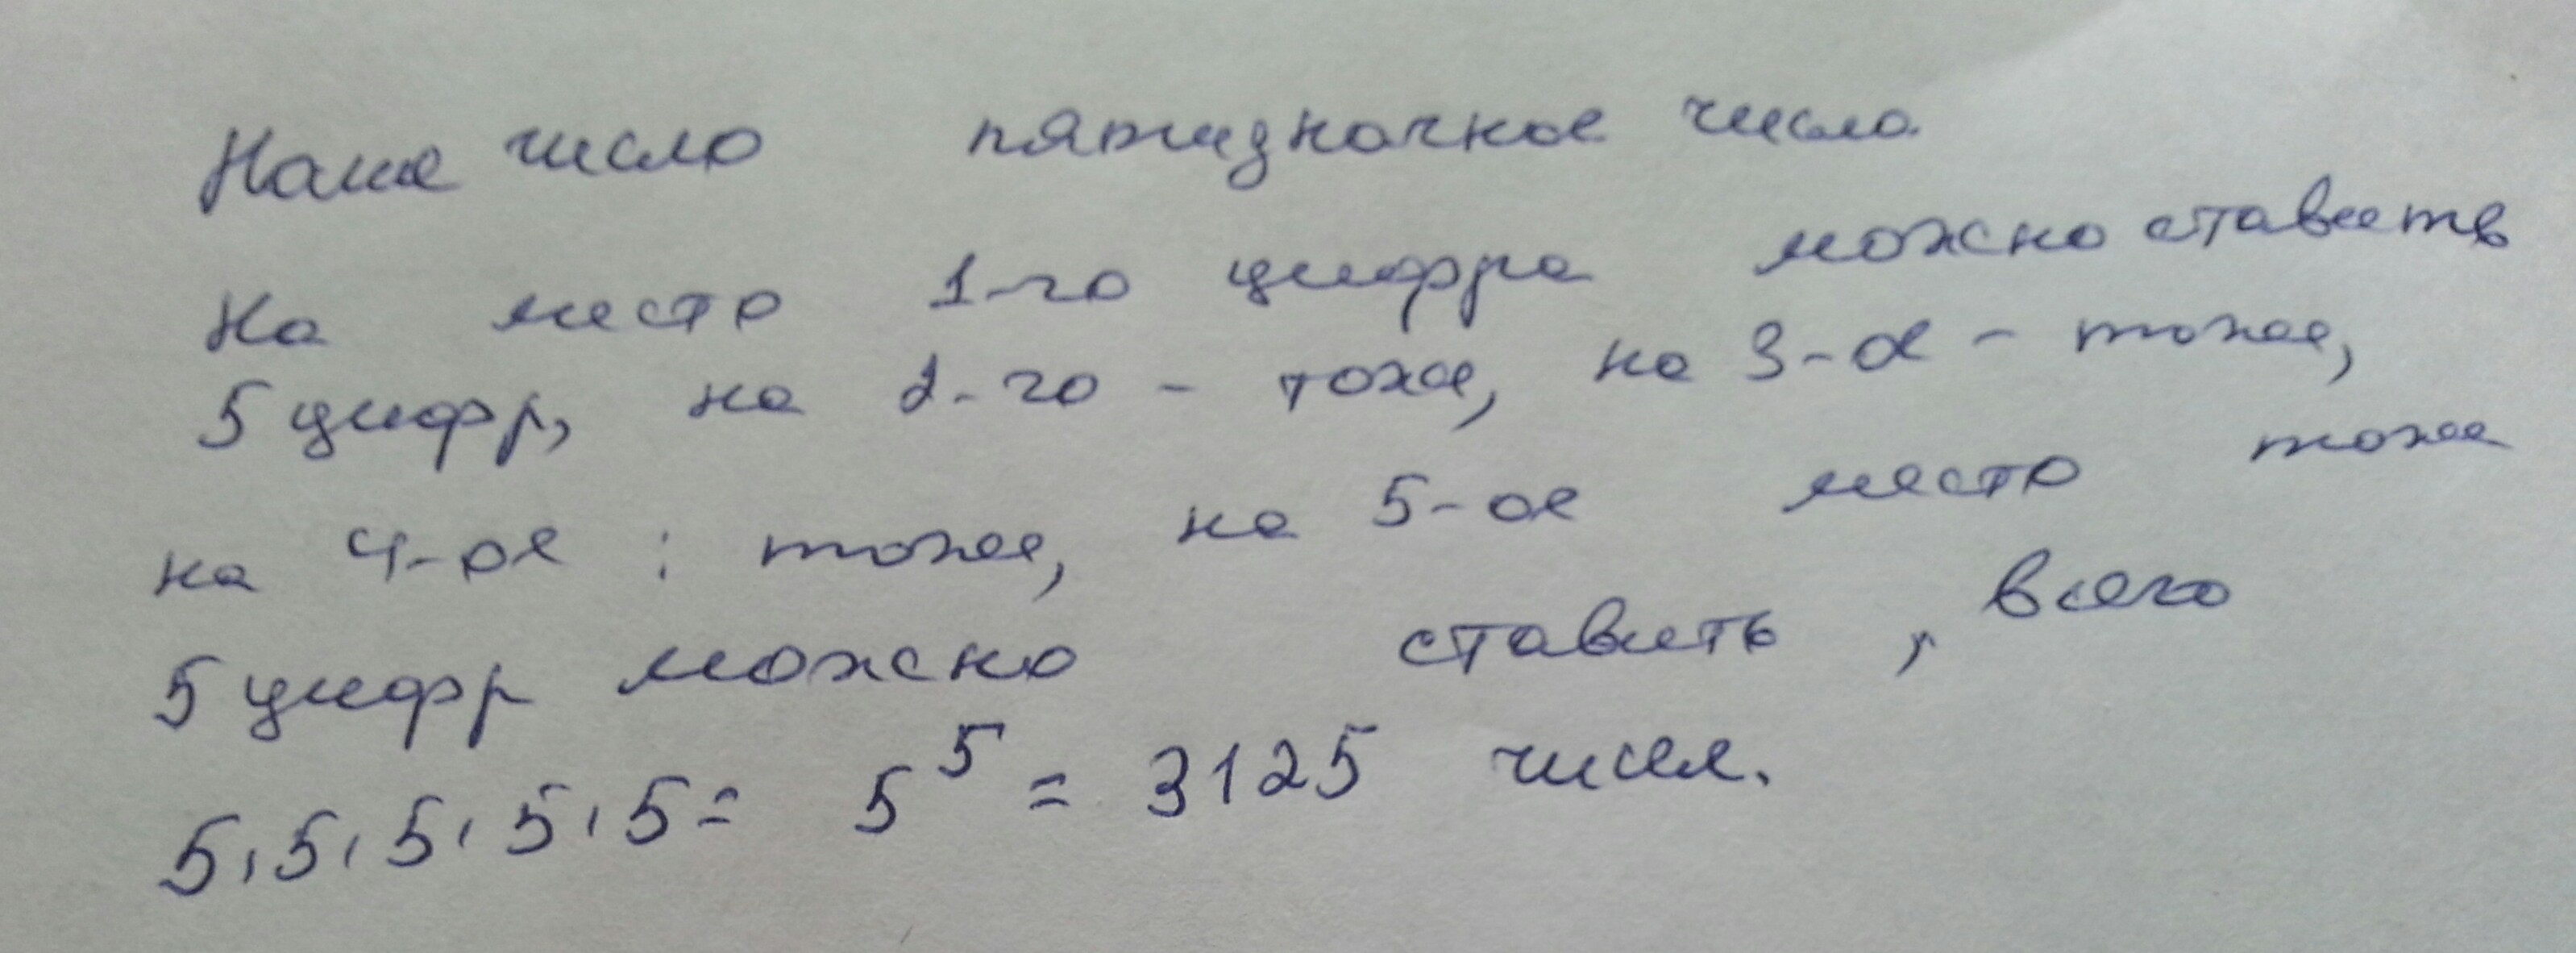 Наше число пятизначное число.
На место 1-го цифра можно ставить
5 цифр, на 2-го - тоже, на 3-ое - тоже,
на 4-ое : тоже, на 5-ое место тоже
5 цифр можно ставить, всего
5.5.5.5.5= 5⁵ = 3125 чисел.